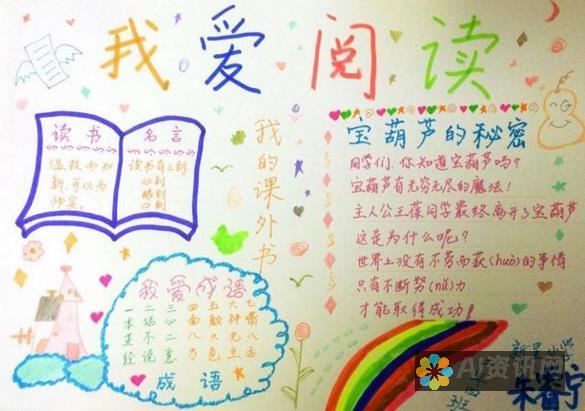 我爱阅读
读书
温故而知
新,可以为
师矣。
名言
读书有三到
心到
眼到
口到
我的课外书
宝葫芦的秘密
同学们,你知道宝葫芦吗?
宝葫芦有无穷无尽的魔法!
主人公王葆同学最终离开了宝葫芦
这是为什么呢?
世界上没有不劳而获(huò)的事情
只有不断努(nǔ)力
才能取得成功!
我爱成语
一本正经
二话不说
三心二意
四面八方
五颜六色
六神无主
七嘴八舌
成语
班
AI资讯网